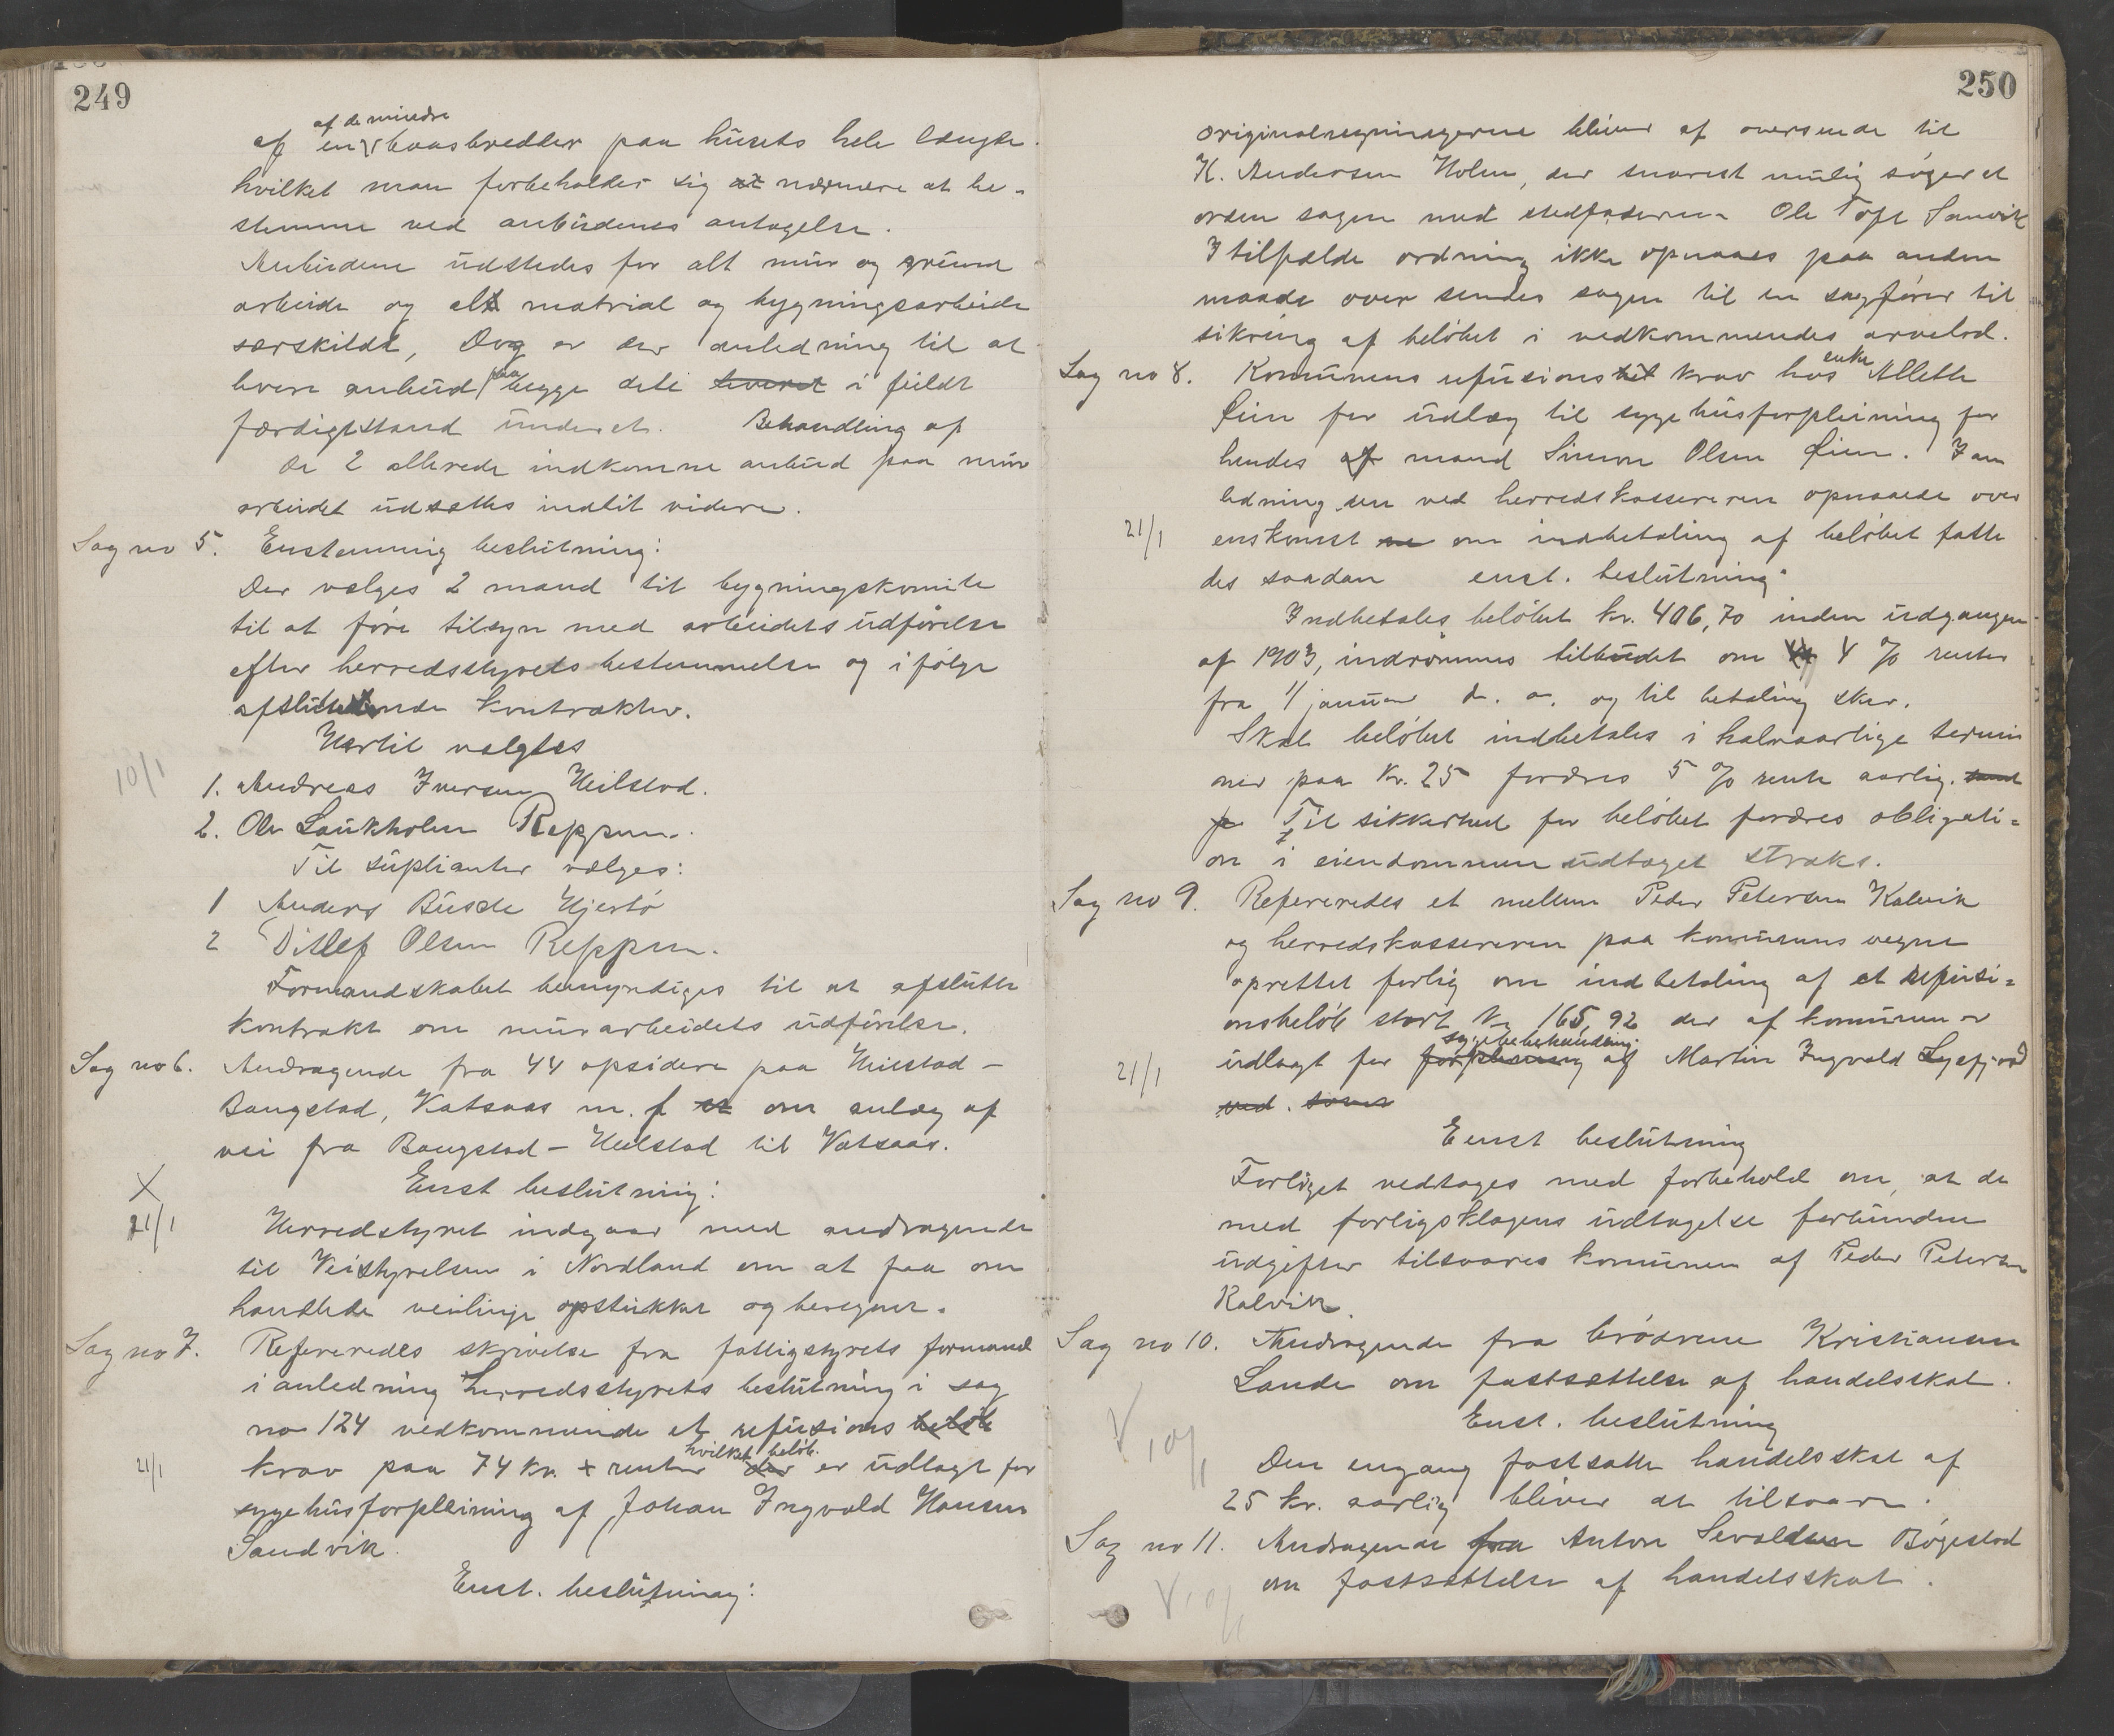 249
af de mindre
af en baasbredder paa husets hele længde.
hvilket man forbeholder sig at nærmere at be-
stemme ved anbudenes antagelse.
Anbudene udstedes for alt mur og grund
arbeide og alt matrial og bygningsarbeide
særskildt, Dog er der anledning til at
paa
levere anbud begge dele hveret i fuldt
færdigtstand underet. Behandling af
de 2 allerede indkomne anbud paa mur
arbeidet udsættes indtil videre.
Sag no 5. Enstemmig beslutning:
Der vælges 2 mand til bygningskomite
til at føre tilsyn med arbeidets udførelse
efter herredsstyrets bestemmelse og i følge
afsluttende kontrakter.
Hertil valgtes
10/1
1. Andreas Iversen Heilstad.
2. Ole Laukholm Reppen.
Til suplianter vælges:
1 Anders Busde Hjertø
2 Ditlef Olsen Reppen.
Formandskabet bemyndiges til at afslutte
kontrakt om murarbeidets udførelse.
Sag no 6. Andragende fra 44 opsidere paa Heilstad -
Bangstad, Vatsaas m. f. om anlæg af
vei fra Bangstad - Heilstad til Vatsaas.
X
Enst beslutning:
21/1
Herredstyret indgaar med andragende
til Veistyrelsen i Nordland om at faa om
handlede veilinje opstukket og beregnet.
Sag no 7. Refereredes skrivelse fra fattigstyrets formand
i anledning herredsstyrets beslutning i sag
no 124 vedkommende et refusions beløb
hvilket beløb.
21/1
krav paa 74 kr. + renter der er udlagt for
sygehusforpleining af Johan Ingvald Hansen
Sandvik.
Enst. beslutning:
250
originalregningerne bliver at oversende til
K. Andersen Holm, der snarest mulig søger at
ordne sagen med stedfaderen Ole Toft Sandvik
I tilfælde ordning ikke opnaaes paa anden
maade over sendes sagen til en sagfører til
sikring af beløbet i vedkommendes arvelod.
enke
Sag no 8. Komunens refusions krav hos Allette
Øien for udlæg til sygehusforpleining for
hendes af mand Simon Olsen Øien. I an
ledning den ved herredskassereren opnaaede over
21/1
enskomst om indbetaling af beløbet fatte
des saadan enst. beslutning:
Indbetales beløbet kr. 406,70 inden udgangen
af 1903, indrømmes tilbudet om 4 % renter
fra 1/1 januar d. a. og til betaling sker.
Skal beløbet indbetales i halvaarlige termi
ner paa kr. 25 fordres 5 % rente aarlig. samt
Til sikkerhed for beløbet fordres obligati=
on i eiendommen udtaget straks.
Sag no 9. Refereredes et mellem Peder Petersen Kalvik
og herredskassereren paa komunens vegne
oprettet forlig om indbetaling af et refusi=
onsbeløb stort kr 165,92 der af komunen er
sygebehandling
21/1
udlagt for forpleining af Martin Ingvald Lysfjord
ved. som
Enst beslutning
Forliget vedtages med forbehold om, at de
med forligsklagens udtagelse forbundne
udgifter tilsvares komunen af Peder Petersen
Kalvik
Sag no 10. Andragende fra brødrene Kristiansen
Lande om fastsættelse af handelsskat.
Enst. beslutning
V 10/1
Den engang fastsatte handelsskat af
25 kr. aarlig bliver at tilsvare.
Sag no 11. Andragende fra Anton Sevaldsen Bøgestad
om fastsættelse af handelsskat.
V 10/1